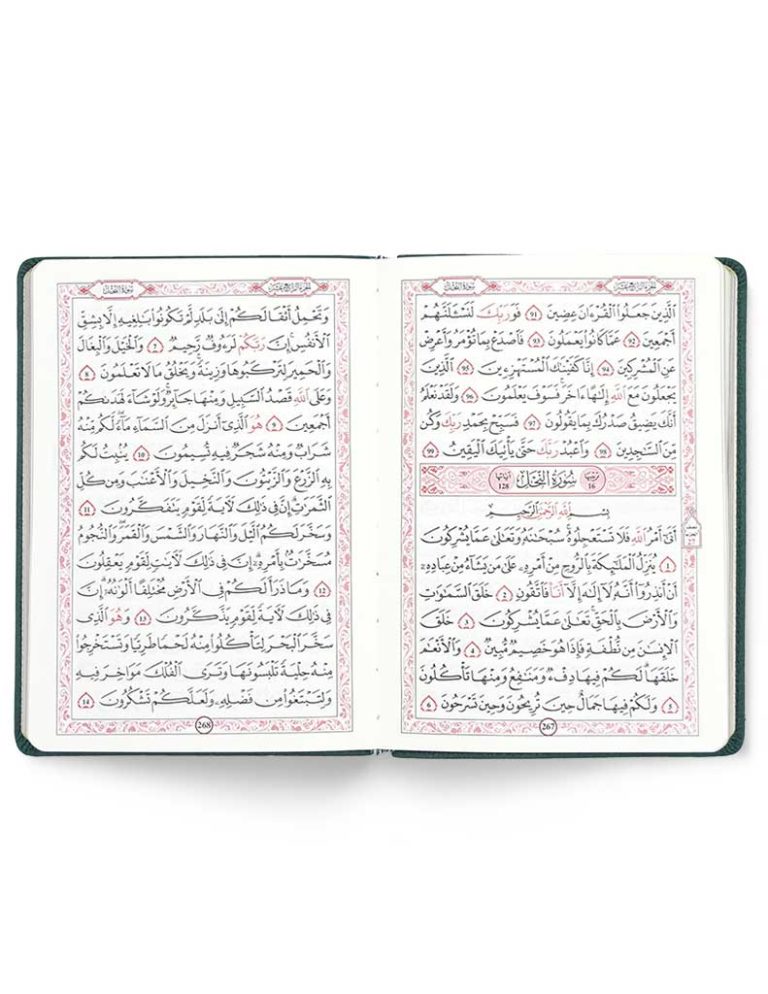 الجزء الرابع عشر
سورة النحل
الَّذِينَ جَعَلُوا الْقُرْءَانَ عِضِينَ 91 فَوَرَبِّكَ لَنَسْـَٔلَنَّهُمْ
أَجْمَعِينَ 92 عَمَّا كَانُوا يَعْمَلُونَ 93 فَاصْدَعْ بِمَا تُؤْمَرُ وَأَعْرِضْ
عَنِ الْمُشْرِكِينَ 94 إِنَّا كَفَيْنَٰكَ الْمُسْتَهْزِءِينَ 95 الَّذِينَ
يَجْعَلُونَ مَعَ اللَّهِ إِلَٰهًا ءَاخَرَ فَسَوْفَ يَعْلَمُونَ 96 وَلَقَدْ نَعْلَمُ
أَنَّكَ يَضِيقُ صَدْرُكَ بِمَا يَقُولُونَ 97 فَسَبِّحْ بِحَمْدِ رَبِّكَ وَكُن
مِّنَ السَّٰجِدِينَ 98 وَاعْبُدْ رَبَّكَ حَتَّىٰ يَأْتِيَكَ الْيَقِينُ 99
ترتيبها 16 سُورَةُ النَّحْلِ آياتها 128
بِسْمِ اللَّهِ الرَّحْمَٰنِ الرَّحِيمِ
أَتَىٰٓ أَمْرُ اللَّهِ فَلَا تَسْتَعْجِلُوهُ سُبْحَٰنَهُ وَتَعَٰلَىٰ عَمَّا يُشْرِكُونَ
1 يُنَزِّلُ الْمَلَٰٓئِكَةَ بِالرُّوحِ مِنْ أَمْرِهِ عَلَىٰ مَن يَشَآءُ مِنْ عِبَادِهِ
أَنْ أَنذِرُوٓا أَنَّهُ لَآ إِلَٰهَ إِلَّآ أَنَا فَاتَّقُونِ 2 خَلَقَ السَّمَٰوَٰتِ
وَالْأَرْضَ بِالْحَقِّ تَعَٰلَىٰ عَمَّا يُشْرِكُونَ 3 خَلَقَ
الْإِنسَٰنَ مِن نُّطْفَةٍ فَإِذَا هُوَ خَصِيمٌ مُّبِينٌ 4 وَالْأَنْعَٰمَ
خَلَقَهَا لَكُمْ فِيهَا دِفْءٌ وَمَنَٰفِعُ وَمِنْهَا تَأْكُلُونَ
5 وَلَكُمْ فِيهَا جَمَالٌ حِينَ تُرِيحُونَ وَحِينَ تَسْرَحُونَ 6
267
الجزء الرابع عشر
سورة النحل
وَتَحْمِلُ أَثْقَالَكُمْ إِلَىٰ بَلَدٍ لَّمْ تَكُونُوا بَٰلِغِيهِ إِلَّا بِشِقِّ
الْأَنفُسِ إِنَّ رَبَّكُمْ لَرَءُوفٌ رَّحِيمٌ 7 وَالْخَيْلَ وَالْبِغَالَ
وَالْحَمِيرَ لِتَرْكَبُوهَا وَزِينَةً وَيَخْلُقُ مَا لَا تَعْلَمُونَ 8
وَعَلَى اللَّهِ قَصْدُ السَّبِيلِ وَمِنْهَا جَآئِرٌ وَلَوْ شَآءَ لَهَدَىٰكُمْ
أَجْمَعِينَ 9 هُوَ الَّذِىٓ أَنزَلَ مِنَ السَّمَآءِ مَآءً لَّكُم مِّنْهُ
شَرَابٌ وَمِنْهُ شَجَرٌ فِيهِ تُسِيمُونَ 10 يُنۢبِتُ لَكُم
بِهِ الزَّرْعَ وَالزَّيْتُونَ وَالنَّخِيلَ وَالْأَعْنَٰبَ وَمِن كُلِّ
الثَّمَرَٰتِ إِنَّ فِى ذَٰلِكَ لَءَايَةً لِّقَوْمٍ يَتَفَكَّرُونَ 11
وَسَخَّرَ لَكُمُ الَّيْلَ وَالنَّهَارَ وَالشَّمْسَ وَالْقَمَرَ وَالنُّجُومُ
مُسَخَّرَٰتٌ بِأَمْرِهِ إِنَّ فِى ذَٰلِكَ لَءَايَٰتٍ لِّقَوْمٍ يَعْقِلُونَ
12 وَمَا ذَرَأَ لَكُمْ فِى الْأَرْضِ مُخْتَلِفًا أَلْوَٰنُهُ إِنَّ
فِى ذَٰلِكَ لَءَايَةً لِّقَوْمٍ يَذَّكَّرُونَ 13 وَهُوَ الَّذِى
سَخَّرَ الْبَحْرَ لِتَأْكُلُوا مِنْهُ لَحْمًا طَرِيًّا وَتَسْتَخْرِجُوا
مِنْهُ حِلْيَةً تَلْبَسُونَهَا وَتَرَى الْفُلْكَ مَوَاخِرَ فِيهِ
وَلِتَبْتَغُوا مِن فَضْلِهِ وَلَعَلَّكُمْ تَشْكُرُونَ 14
268